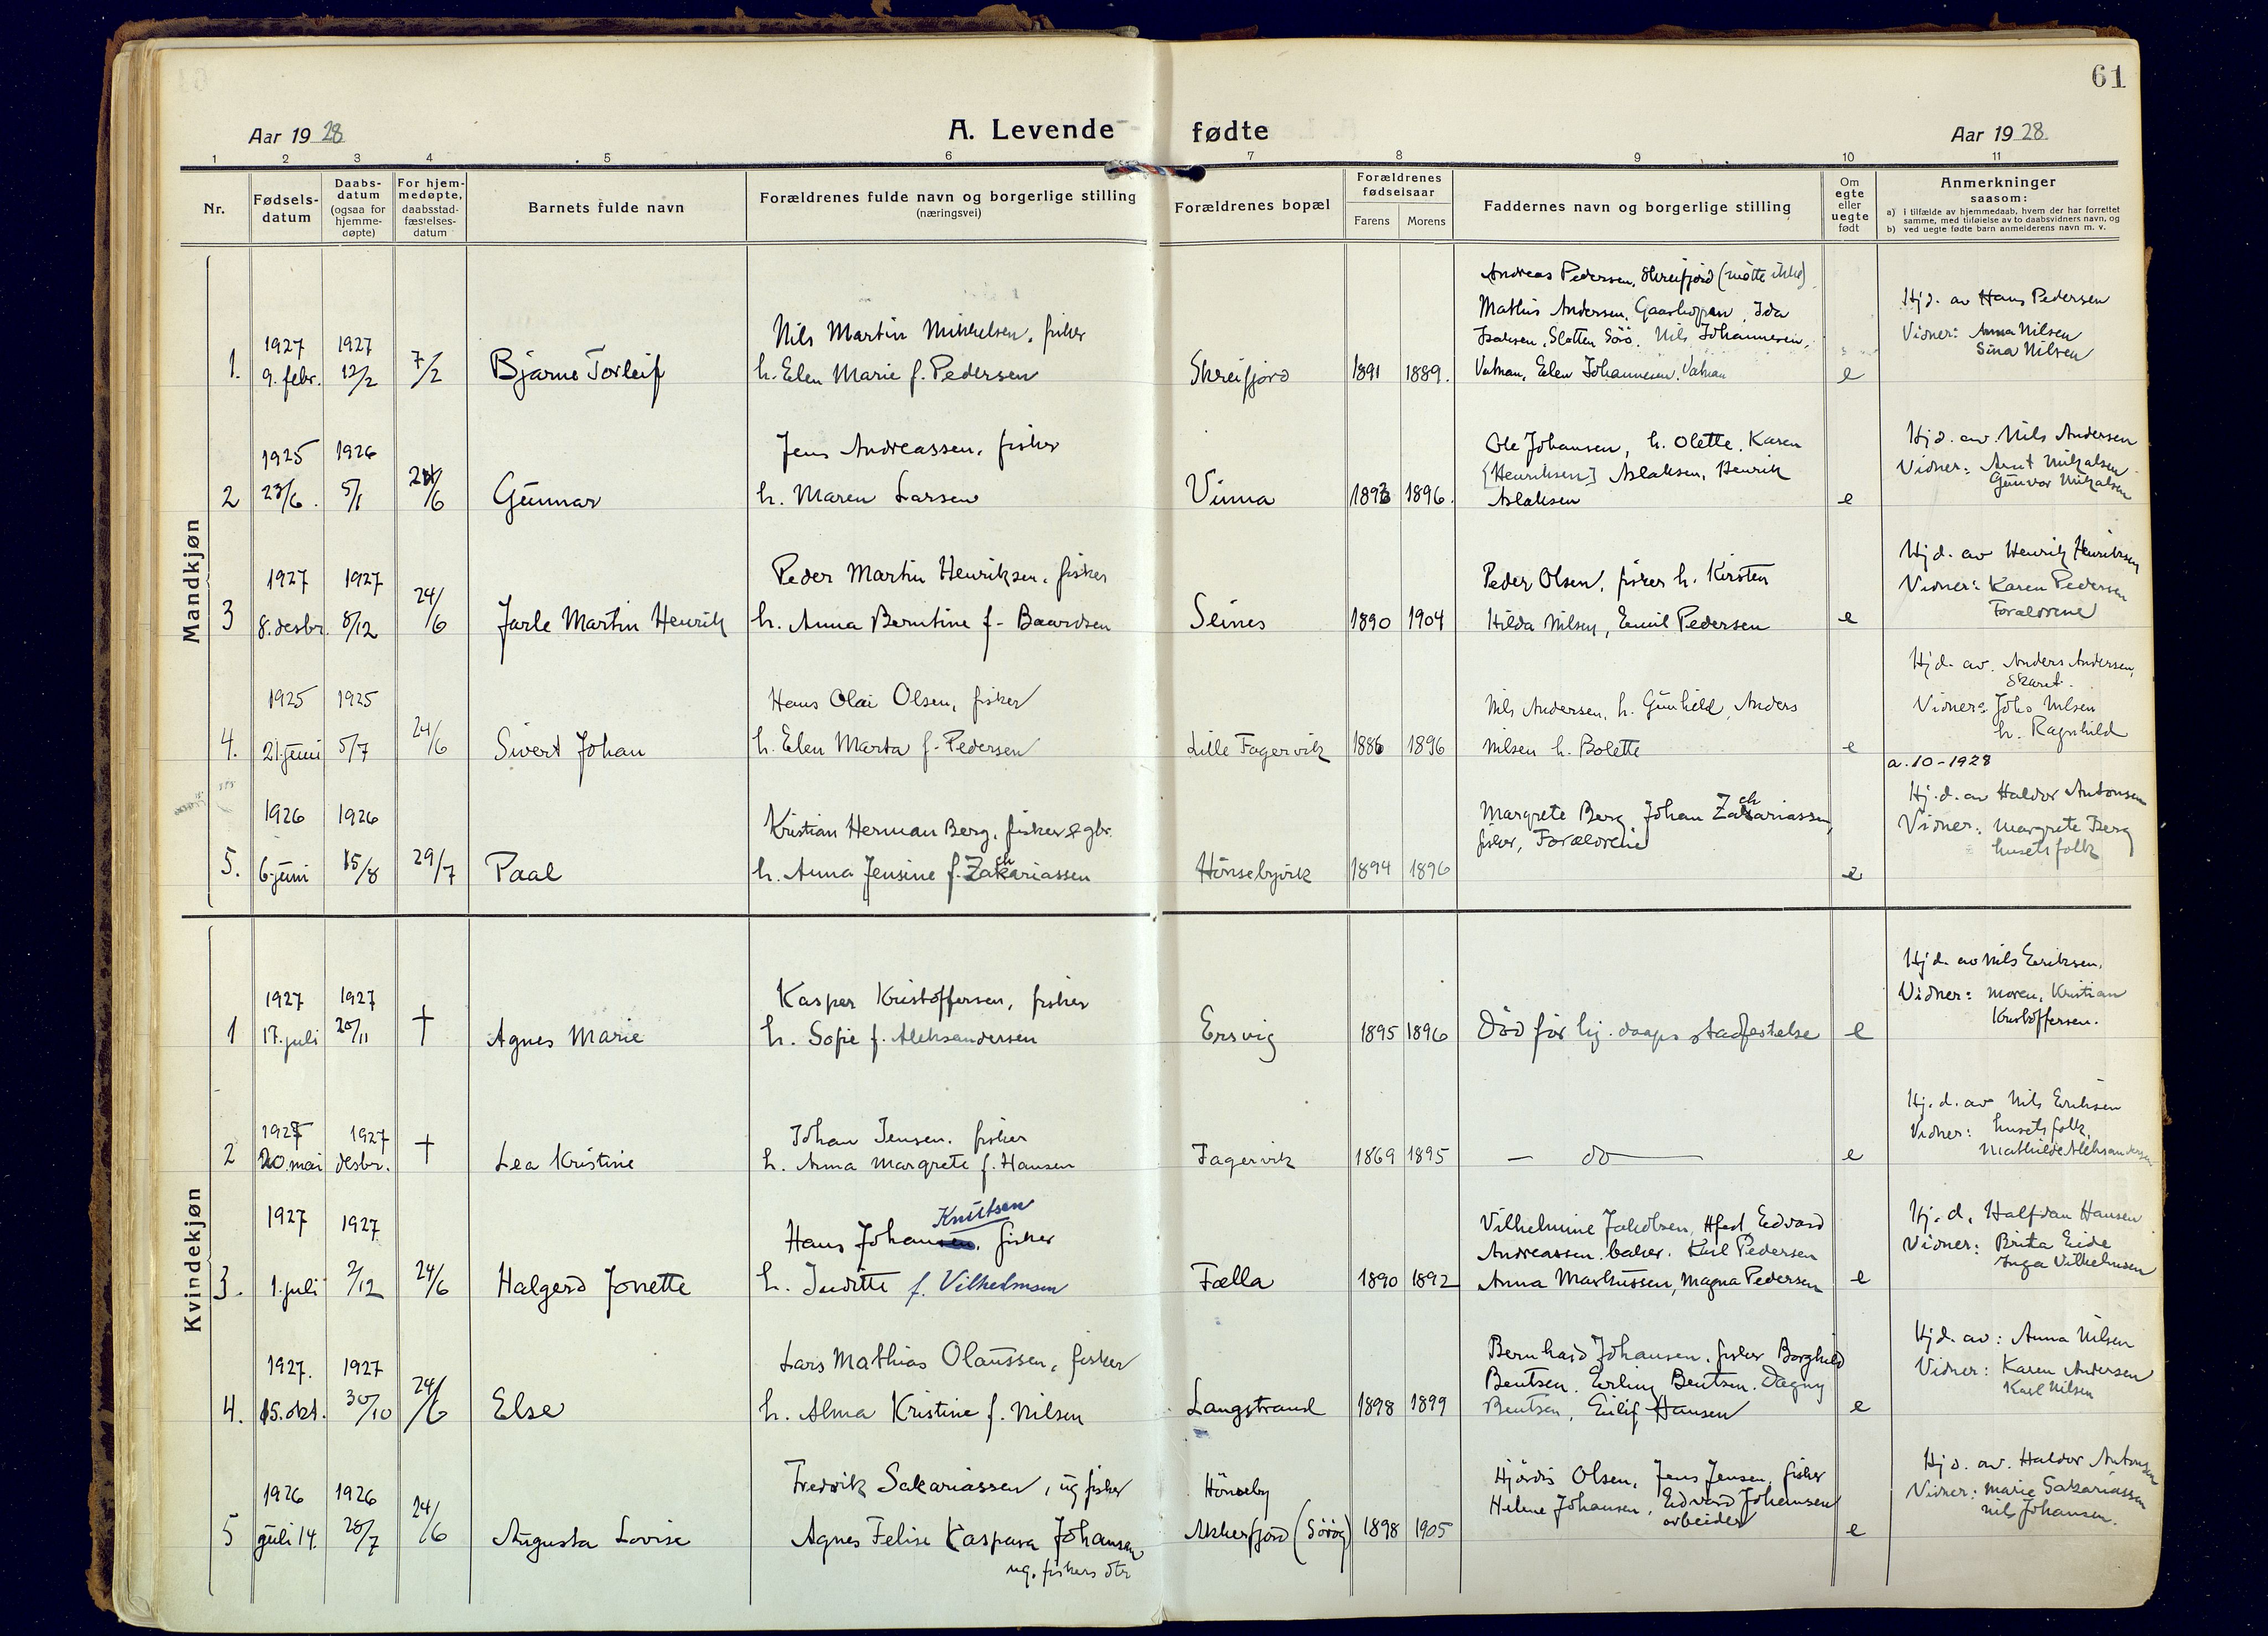 61
Aar 1928
A. Levende fødte
Aar 1928
1 2 3 4 5 6 7 8 9 10 11
Nr.
Fødsels-
datum
Daabs-
datum
(ogsaa for
hjemme-
døpte)
For hjem-
medøpte,
daabsstad-
fæstelses-
datum
Barnets fulde navn
Forældrenes fulde navn og borgerlige stilling
(næringsvei)
Forældrenes bopæl
Forældrenes
fødselsaar
Farens Morens
Faddernes navn og borgerlige stilling
Om
egte
eller
uegte
født
Anmerkninger
saasom:
a) i tilfælde av hjemmedaab, hvem der har forrettet
samme, med tilføielse av to daabsvidners navn, og
b) ved uegte fødte barn anmelderens navn m. v.
Mandkjøn
1.
1927
9. febr.
1927
12/2
7/2
Bjarne Torleif
Nils Martin Mikkelsen, fisker
h. Elen Marie f. Pedersen
Skreifjord
1891 1889.
Andreas Pedersen, Skreifjord (møtte ikke)
Mathis Andersen, Gaashopen, Ida
Isaksen, Sletten Sörö. Nils Johannesen,
Vatnan, Elen Johannesen, Vatnan
e
Hjd. av Hans Pedersen
Vidner: Anna Nilsen
Sina Nilsen
2
1925
23/6.
1926
5/1
24/6
Gunnar
Jens Andreassen, fisker
h. Maren Larsen
Vinna
1893 1896.
Ole Johansen, h. Olette. Karen
[Henriksen] Aslaksen, Henrik
Aslaksen
e
Hjd. av. Nils Andersen
Vidner: Arnt Mikalsen
Gunvor Mikalsen
3
1927
8. desbr.
1927
8/12
24/6
Jarle Martin Henrik
Peder Martin Henriksen, fisker
h. Anna Berntine f. Baardsen
Seines
1890 1904
Peder Olsen, fisker h. Kirsten
Hilda Nilsen, Emil Pedersen
e
Hjd. av Henrik Henriksen
Vidner: Karen Pedersen
Forældrene
4.
1925
21. juni
1925
5/7
24/6
Sivert Johan
Hans Olai Olsen, fisker
h. Elen Marta f. Pedersen
Lille Fagervik
1886 1896
Nils Andersen, h. Gunhild, Anders
Nilsen h. Bolette
e
Hjd. av. Anders Andersen,
Skaret.
Vidner: Johs Nilsen
h. Ragnhild
a. 10-1928
5.
1926
6 juni
1926
15/8
29/7
Paal
Kristian Herman Berg, fisker & gbr.
h. Anna Jensine f. Zachariassen
Hönsebyvik
1894 1896
Margrete Berg Johan Zachariassen,
fisker, Forældrene
e
Hj.d. av Haldor Antonsen
Vidner: Margrete Berg
husets folk
Kvindekjøn
1
1927
17. juli
1927
20/11
†
Agnes Marie
Kasper Kristoffersen, fisker
h. Sofie f. Aleksandersen
Ersvig
1895 1896
Död för hj. daaps stadfestelse
e
Hjd. av Nils Eriksen.
Vidner: Moren, Kristian
Kristoffersen.
2
1927
20. mai
1927
desbr.
†
Lea Kristine
Johan Jensen, fisker
h. Anna Margrete f. Hansen
Fagervik
1869 1895
— do —
e
Hj.d. av Nils Eriksen
Vidner: husets folk,
Mathilde Aleksandersen
3.
1927
1. juli
1927
2/12
24/6
Halgerd Jonette
Knutsen
Hans Johansen, fisker
h. Juditte f. Vilhelmsen
Fælla
1890 1892
Vilhelmine Jakobsen, Edvard
Andreassen, baker. Karl Pedersen
Anna Markussen, Magna Pedersen
e
Hj.d. Halfdan Hansen
Vidner: Brita Eide
Inga Vilhelmsen
4.
1927.
15. okt.
1927
30/10
24/6
Else
Lars Mathias Olaussen, fisker
h. Alma Kristine f. Nilsen
Langstrand
1898 1899
Bernhard Johansen, fisker Borghild
Bentsen, Erling Bentsen, Dagny
Bentsen, Eilif Hansen
e
Hjd. av: Anna Nilsen
Vidner: Karen Andersen
Karl Nilsen
5
1926
juli 14.
1926
28/7
24/6
Augusta Lovise
Fredrik Sakariassen, ug fisker
Agnes Felise Kaspara Johansen
ug. fiskers dtr
Hönseby
Akkerfjord (Söröy)
1898 1905
Hjördis Olsen, Jens Jensen, fisker
Helene Johansen, Edvard Johansen
arbeider
e
Hjd. av. Haldor Antonsen
Vidner: Marie Sakariassen
Nils Johansen.